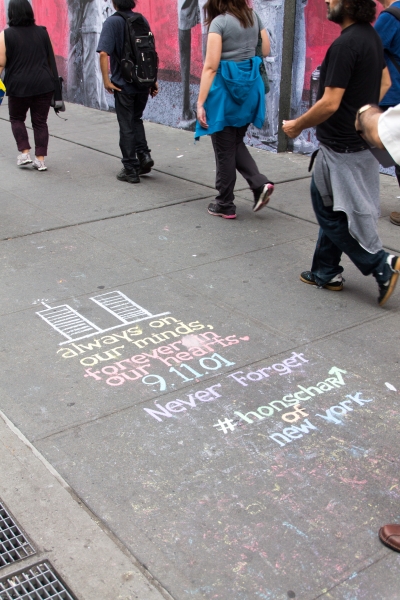 always on
our minds,
forever in
our hearts.
9.11.01
Never Forget
#honschar
of
new york